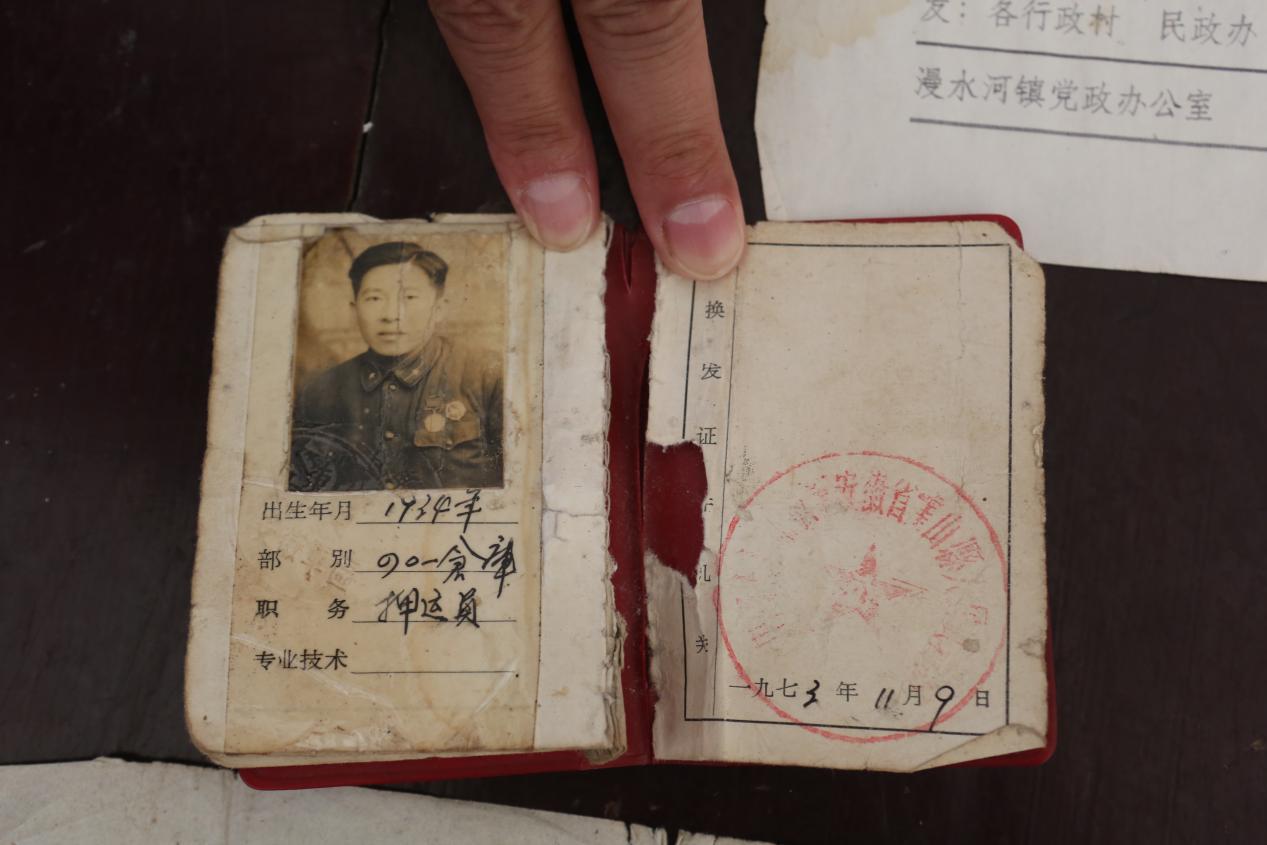 发：各行政村 民政办
漫水河镇党政办公室
出生年月 1934年
部别 九〇一仓库
职务 押运员
专业技术
换发证
关
安徽省霍山县
一九七3年11月9日